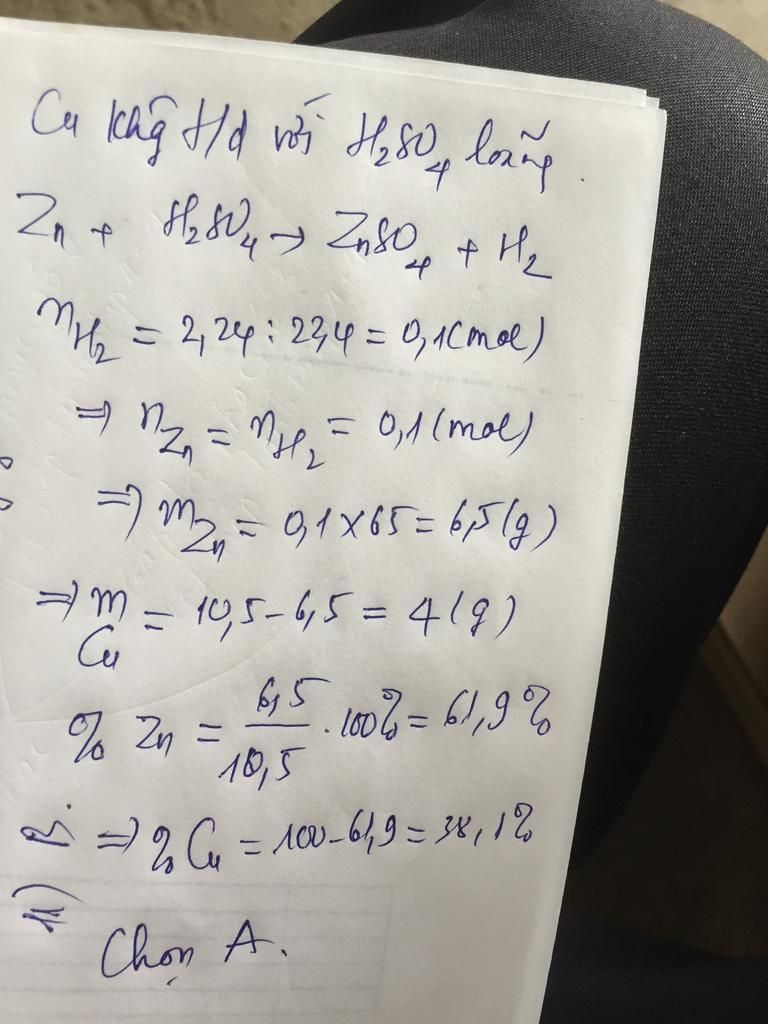 Cu khg t/d với H₂SO₄ loãng.
Zn + H₂SO₄ → ZnSO₄ + H₂
nH₂ = 2,24 : 22,4 = 0,1 (mol)
=> nZn = nH₂ = 0,1 (mol)
=> mZn = 0,1 x 65 = 6,5 (g)
=> mCu = 10,5 - 6,5 = 4 (g)
% Zn = 6,5/10,5 . 100% = 61,9 %
=> % Cu = 100 - 61,9 = 38,1 %
Chọn A.